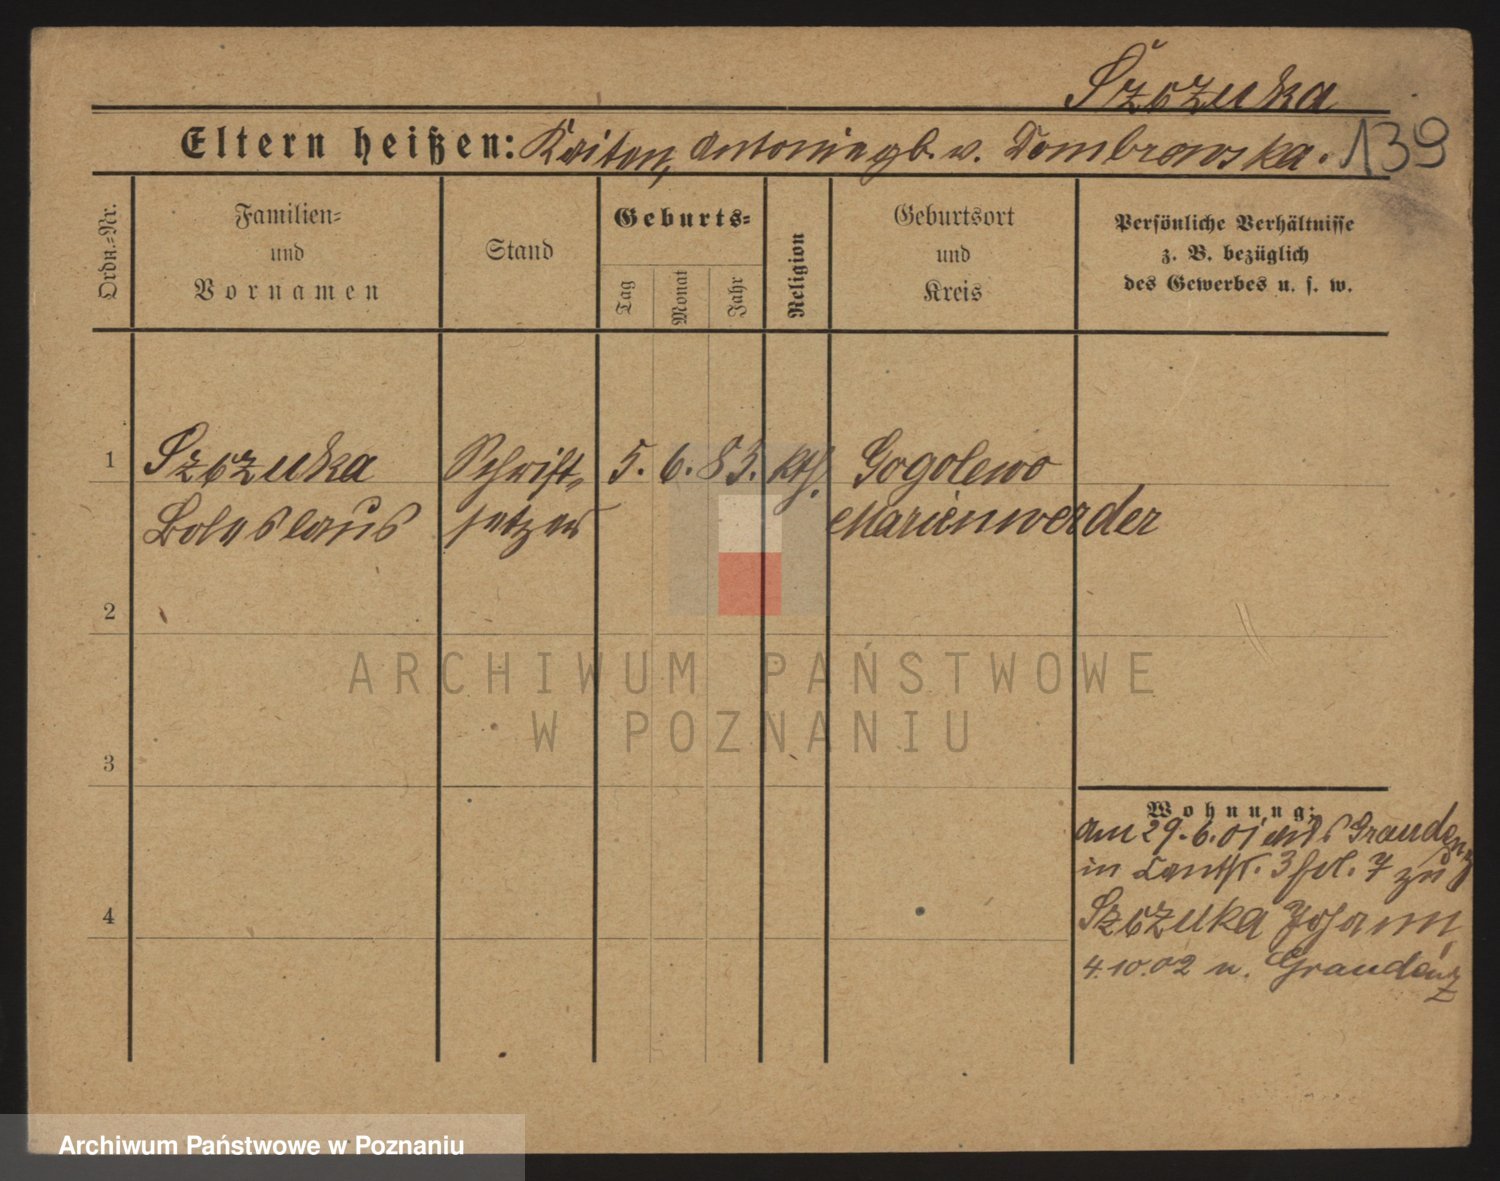 Szczuka
Eltern heißen: Kaitan, Antonie gb. v. Dombrowska.
139
Ordn.-Nr.
Familien-
und
Vornamen
Stand
Geburts-
Tag
Monat
Jahr
Religion
Geburtsort
und
Kreis
Persönliche Verhältnisse
z. B. bezüglich
des Gewerbes u. s. w.
1
Szczuka
Boleslaus
Schrift-
setzer
5. 6. 83. kth.
Gogolewo
Marienwerder
2
3
4
Wohnung:
am 29.6.01 aus Graudenz
in 3 fol. 7 zu
Szczuka Johann
4.10.02 n. Graudenz
ARCHIWUM PAŃSTWOWE
W POZNANIU
Archiwum Państwowe w Poznaniu